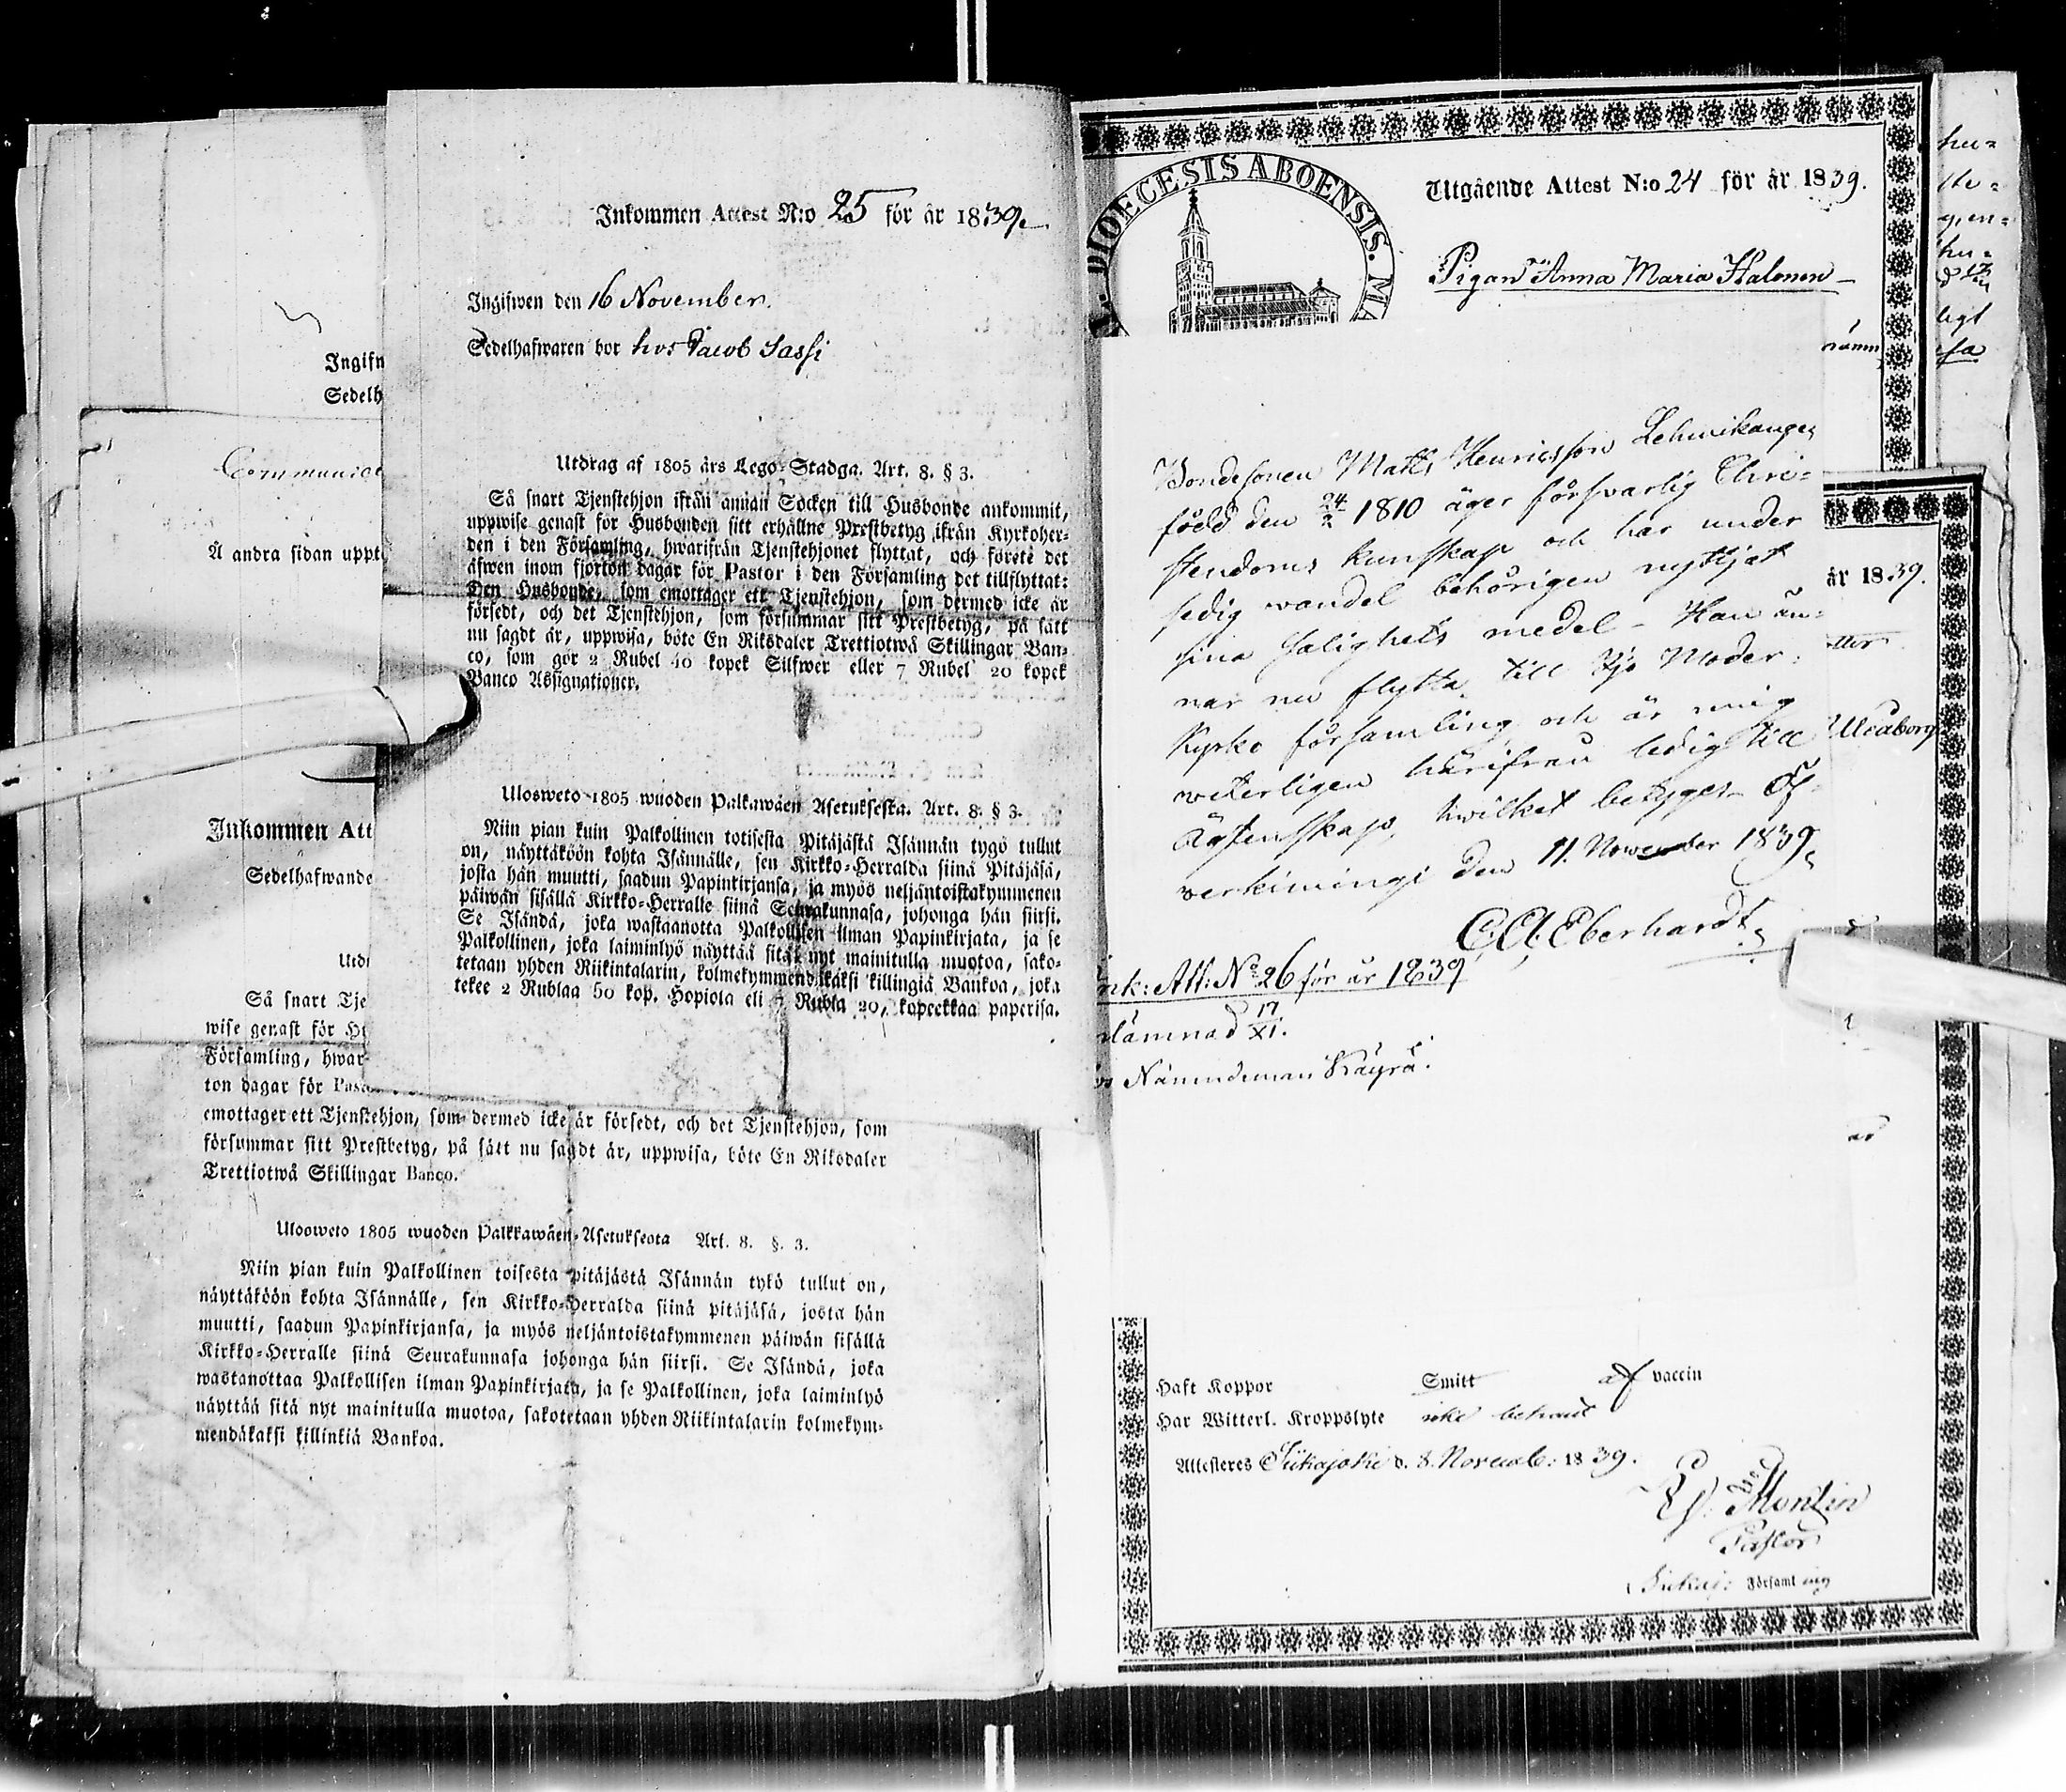 Inkommen Attest N:o 25 för år 1839.
Ingifwen den 16 November.
Sedelhafwaren bor hos Jacob Sassi
Utdrag af 1805 års Lego-Stadga. Art. 8. § 3.
Så snart Tjenstehjon ifrån annan Socken till Husbonde ankommit,
uppwise genast för Husbonden sitt erhållne Prestbetyg ifrån Kyrkoher-
den i den Församling, hwarifrån Tjenstehjonet flyttat, och förete det
äfwen inom fjorton dagar för Pastor i den Församling det tillflyttat:
Den Husbonde, som emottager ett Tjenstehjon, som dermed icke är
försedt, och det Tjenstehjon, som försummar sitt Prestbetyg, på sätt
nu sagdt är, uppwisa, böte En Riksdaler Trettiotwå Skillingar Ban-
co, som gör 2 Rubel 40 kopek Silfwer eller 7 Rubel 20 kopek
Banco Assignationer.
Ulosweto 1805 wuoden Palkawäen Asetuksesta. Art. 8. § 3.
Niin pian kuin Palkollinen toisesta Pitäjästä Isännän tygö tullut
on, näyttäköön kohta Isännälle, sen Kirkko-Herralda siinä Pitäjäsä,
josta hän muutti, saadun Papinkirjansa, ja myös neljäntoistakymmenen
päiwän sisällä Kirkko-Herralle siinä Seurakunnasa, johonga hän siirsi.
Se Isändä, joka wastaanotta Palkollisen ilman Papinkirjata, ja se
Palkollinen, joka laiminlyö näyttää sitä nyt mainitulla muotoa, sako-
tetaan yhden Riikintalarin, kolmekymmendäkaksi killingiä Bankoa, joka
tekee 2 Rublaa 50 kop. Hopiola eli 7 Rubla 20, kopeekkaa paperisa.
Ingifw
Sedelh
Communice
Å andra sidan uppt
Inkommen Att
Sedelhafwande
Utd
Så snart Tje
wise genast för Hu
Församling, hwar
ton dagar för Past
emottager ett Tjenstehjon, som dermed icke är försedt, och det Tjenstehjon, som
försummar sitt Prestbetyg, på sätt nu sagdt är, uppwisa, böte En Riksdaler
Trettiotwå Skillingar Banco.
Ulosweto 1805 wuoden Palkkawäen-Asetuksesta Art. 8. §. 3.
Niin pian kuin Palkollinen toisesta pitäjästä Isännän tykö tullut on,
näyttäköön kohta Isännälle, sen Kirkko-Herralda siinä pitäjäsä, josta hän
muutti, saadun Papinkirjansa, ja myös neljäntoistakymmenen päiwän sisällä
Kirkko-Herralle siinä Seurakunnasa johonga hän siirsi. Se Isändä, joka
wastanottaa Palkollisen ilman Papinkirjata, ja se Palkollinen, joka laiminlyö
näyttää sitä nyt mainitulla muotoa, sakotetaan yhden Riikintalarin kolmekym-
mendäkaksi killinkiä Bankoa.
DIOECESIS ABOENSIS. MA
Utgående Attest N:o 24 för år 1839.
Pigan Anna Maria Halonen
Bondesonen Matts Henricsson Lehmikangas
född den 24/2 1810 äger försvarlig Chri-
stendoms kunskap och har under
sedig wandel behörigen nyttjat
sina salighets medel - Han äm-
nar nu flytta till Ijo Moder-
Kyrko församling och är mig
weterligen härifrån ledig till
Ägtenskap, hwilket betygas Öf-
verkimingi den 11. November 1839.
C. A. Eberhardt.
Ink: Att: No 26 för år 1839
lämnad 17/XI.
Nämndeman Käyrä.
år 1839.
Uleåborg
Haft Koppor Smitt af vaccin
Har Witterl. Kroppslyte icke bekant
Attesteres Siikajoki d. 8. Novemb: 1839.
Montin
Pastor
Siikaj: Församling